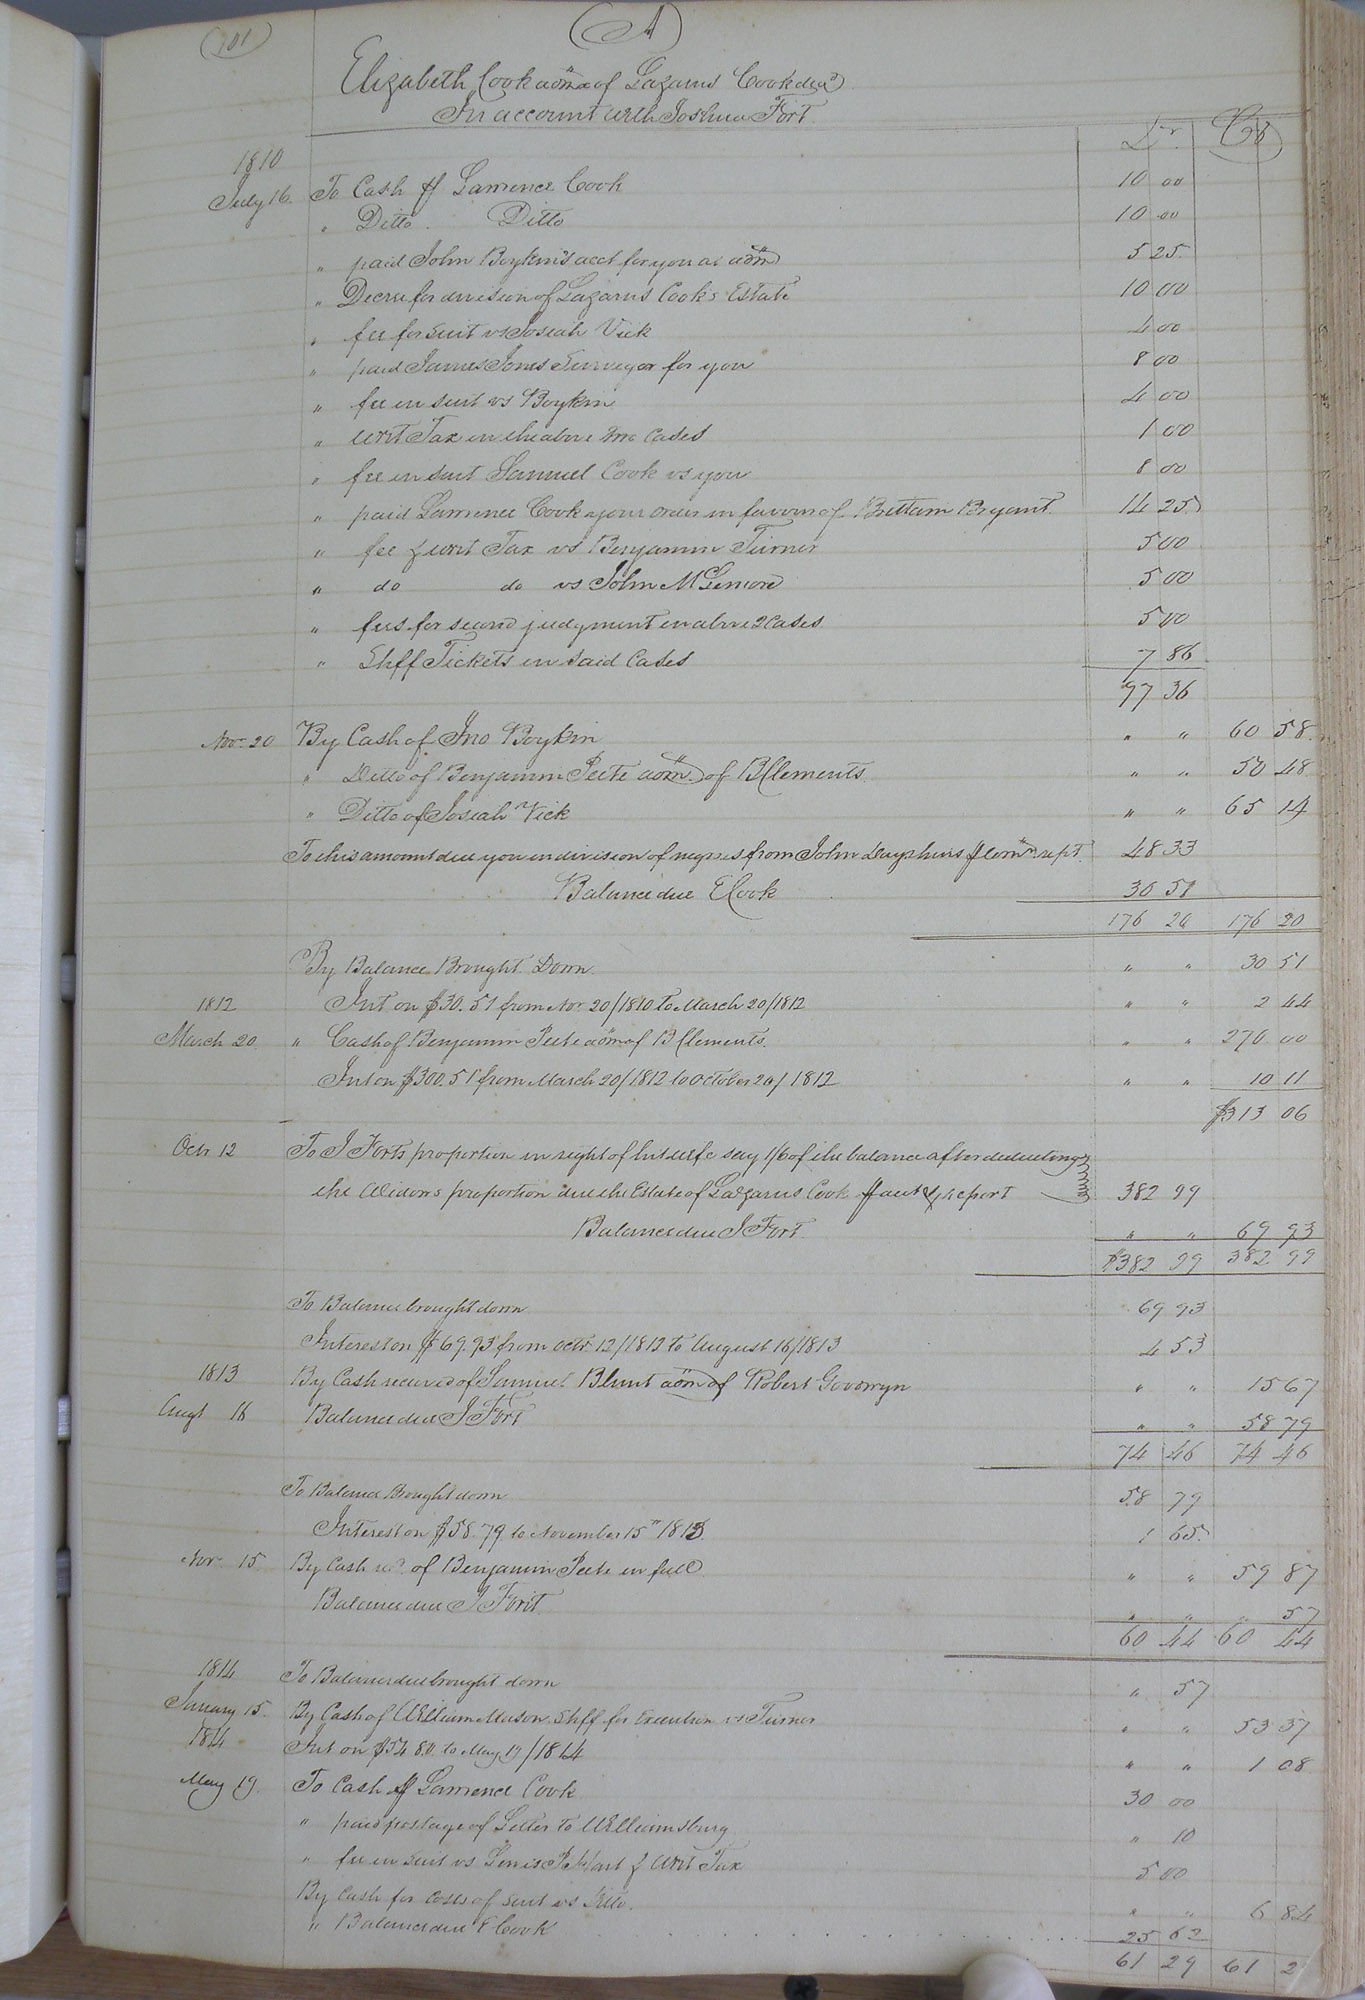 101
(A)
Elizabeth Cook admx of Lazarus Cook decd
In account with Joshua Fort
Dr. Cr
1810
July 16. To Cash pr Lawrence Cook 10 00
" Ditto. Ditto 10 00
" paid John Boykin's acct for you as admx 5 25
" Decree for division of Lazarus Cook's Estate 10 00
" fee for suit vs Josiah Vick 4 00
" paid James Jones Surveyor for you 8 00
" fee in suit vs Boykin 4 00
" Writ Tax in the above two Cases 1 00
" fee in suit Samuel Cook vs you 8 00
" paid Lawrence Cook your order in favour of Brittain Bryant 14 25
" fee & writ Tax vs Benjamin Turner 5 00
" do do vs John McLemore 5 00
" fees for second judgment in above 2 Cases 5 00
" Shff Tickets in said Cases 7 86
97 36
Nov. 20 By Cash of Jno Boykin " " 60 58
" Ditto of Benjamin Peete adm of B Clements " " 50 48
" Ditto of Josiah Vick " " 65 14
To this amount due you in division of negroes from John pr Comrs rept. 48 33
Balance due E Cook 30 51
176 20 176 20
By Balance Brought Down " " 30 51
1812 Int on $30.51 from Nov. 20/1810 to March 20/1812 " " 2 44
March 20 " Cash of Benjamin Peete adm of B Clements. " " 270 00
Int on $300.51 from March 20/1812 to October 20/1812 " " 10 11
$313 06
Octr 12 To J Forts proportion in right of his wife say 1/6 of the balance after deducting
the Widows proportion due the Estate of Lazarus Cook pr acct & report 382 99
Balance due J Fort. " " 69 93
$382 99 382 99
To Balance brought down 69 93
Interest on $69.93 from Octr 12/1812 to August 16/1813 4 53
1813 By Cash received of Samuel Blunt adm of Robert Goodwyn " " 15 67
Augt 16 Balance due J Fort " " 58 79
74 46 74 46
To Balance Brought down 58 79
Interest on $58.79 to November 15th 1813 1 65
Nov. 15 By Cash recd. of Benjamin Peete in full " " 59 87
Balance due J Fort " " " 57
60 44 60 44
1814 To Balance due brought down " 57
January 15. By Cash of William Mason Shff for Execution vs Turner " " 53 37
1814 Int on $54 80 to May 19/1814 " " 1 08
May 19. To Cash pr Lawrence Cook 30 00
" paid postage of Letter to Williamsburg " 10
" fee in suit vs Lewis & Writ Tax 5 00
By Cash for Costs of Suit vs Ditto. " " 6 84
" Balance due E Cook 25 62
61 29 61 2